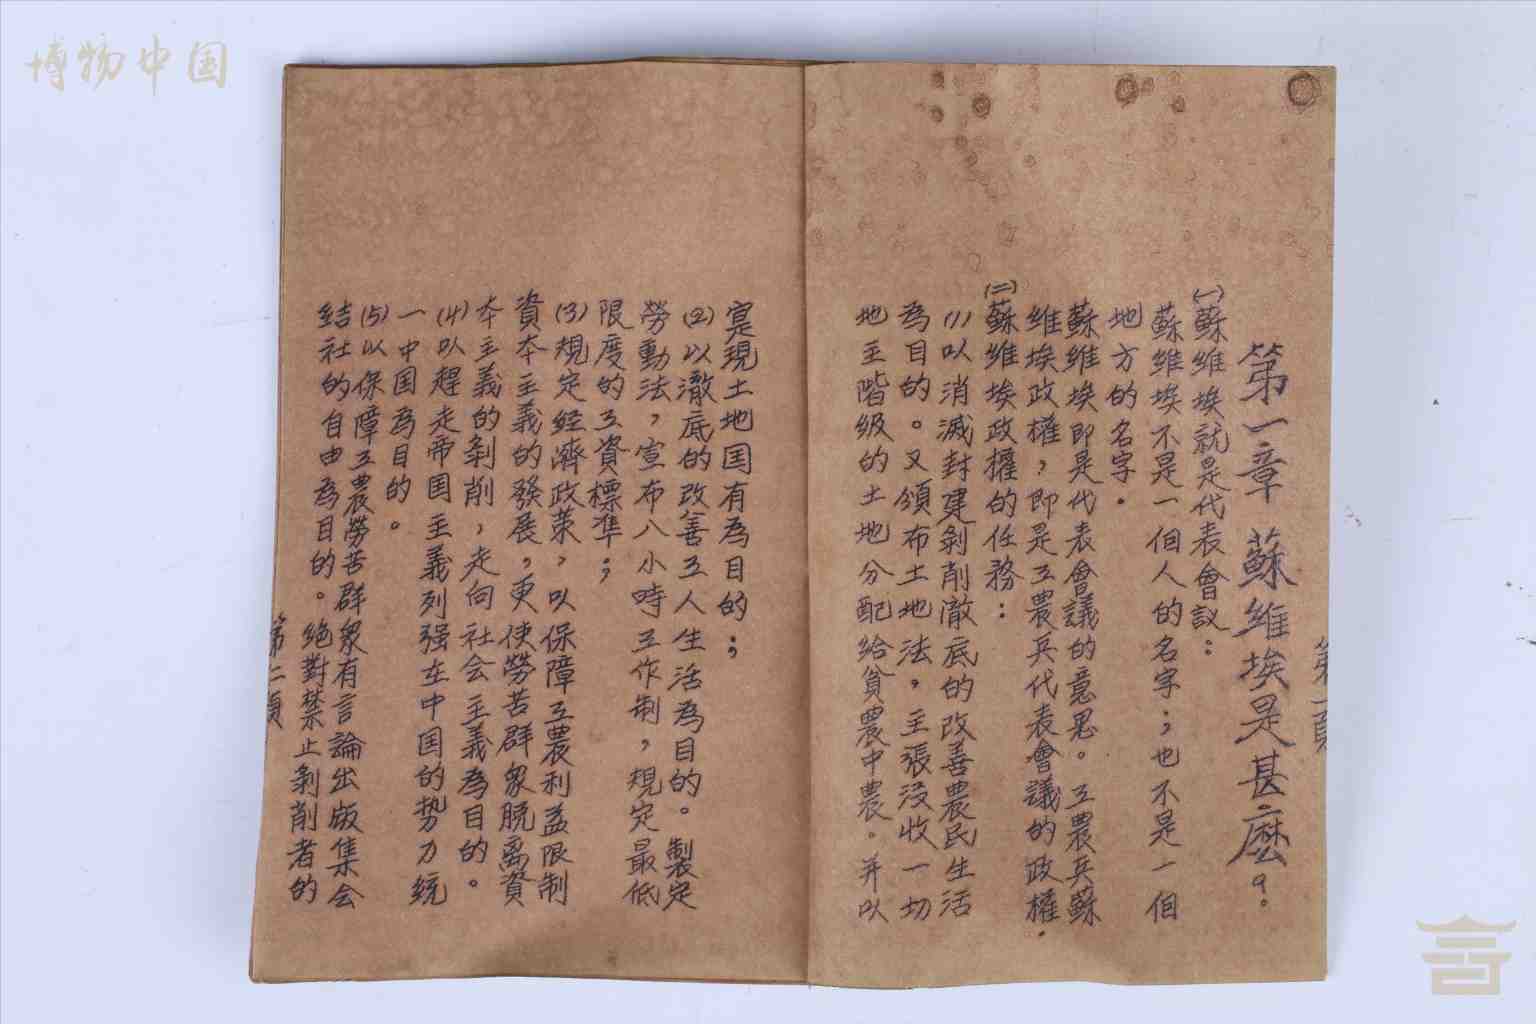 博物中国
第一頁
第一章 蘇維埃是甚麼?。
(一)蘇維埃就是代表會議:
蘇維埃不是一個人的名字;也不是一個
地方的名字。
蘇維埃即是代表會議的意思。工農兵蘇
維埃政權,即是工農兵代表會議的政權.
(二)蘇維埃政權的任務:
(1)以消滅封建剝削澈底的改善農民生活
為目的。又頒布土地法,主張没收一切
地主階級的土地分配給貧農中農。并以
寔現土地国有為目的;
(2)以澈底的改善工人生活為目的。製定
勞動法,宣布八小時工作制,規定最低
限度的工資標準;
(3)規定経濟政策,以保障工農利益限制
資本主義的發展,更使勞苦群衆脱离資
本主義的剝削,走向社会主義為目的。
(4)以趕走帝国主義列强在中国的势力統
一中国為目的。
(5)以保障工農勞苦群衆有言論出版集会
結社的自由為目的。絶對禁止剝削者的
第二頁